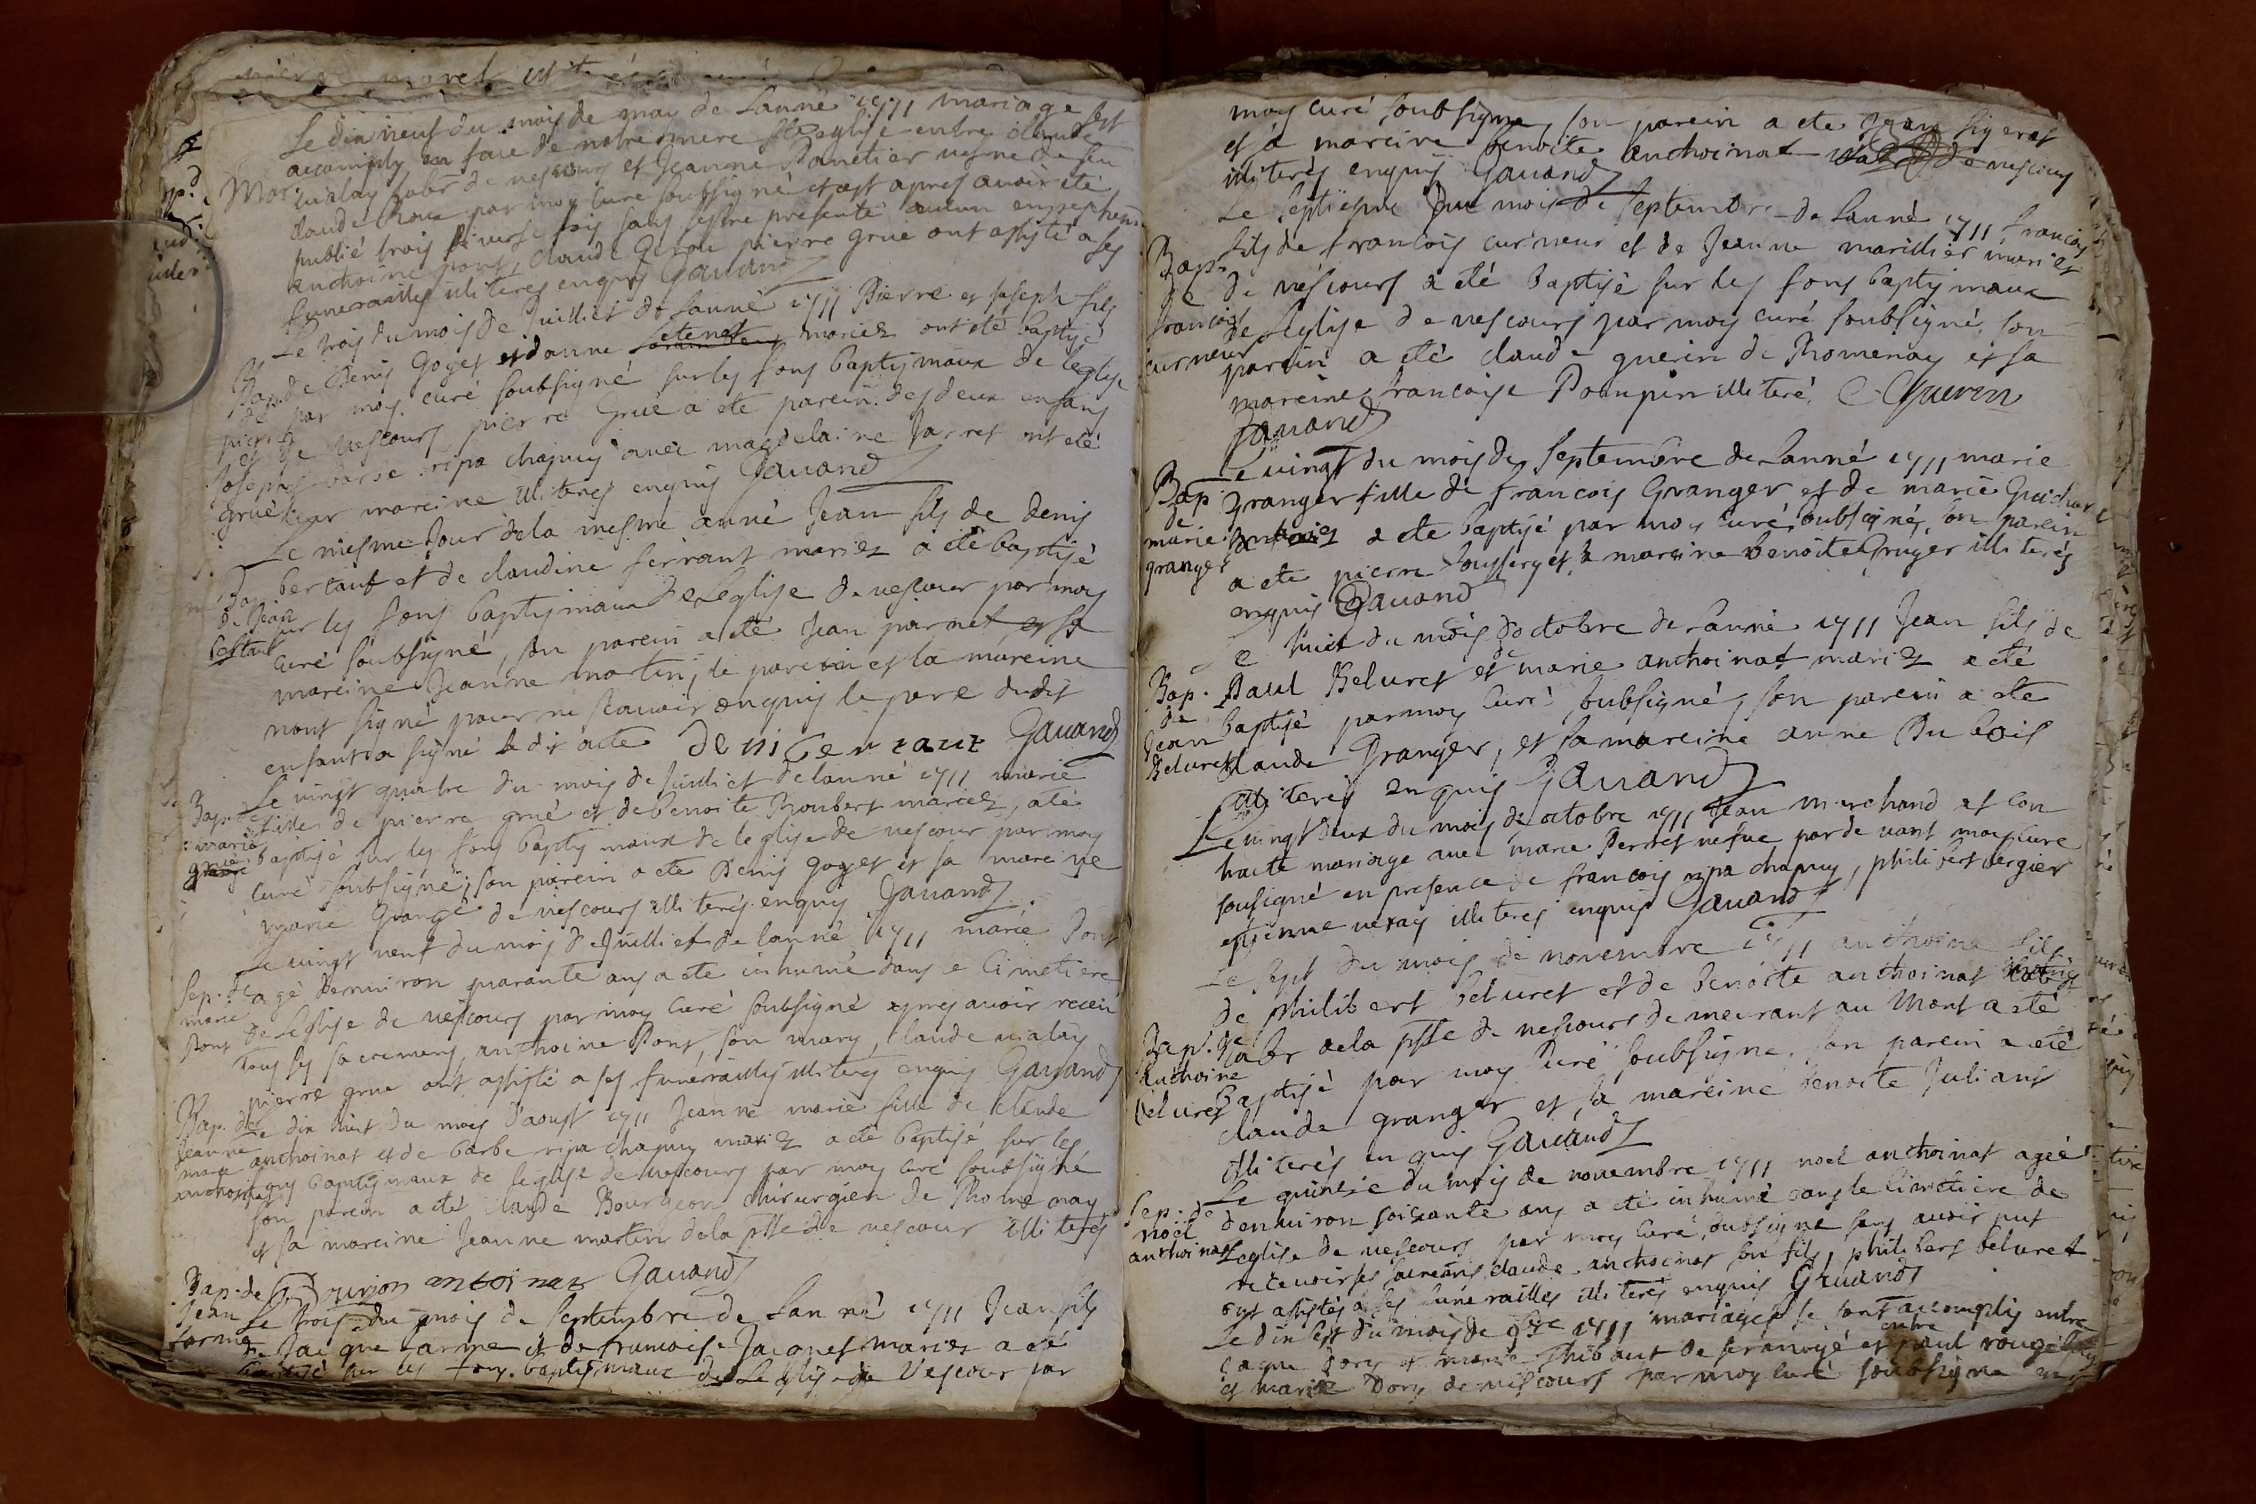 Le dix neuf du mois de may de Lanné 1711 mariage sest
accomply en face de notre mere Ste eglise entre claude
Mar. vialay labr de vescours et Jeanne Panetier vesve de feu
claude par moy curé soubsigné et ast apres avoir eté
publié trois diverse fois sans sestre presenté aucun empechem
anthoine pont, claude pierre grue ont assisté a ses
funerailles illiteres enquis Gauand
Le trois du mois de Juilliet de Lanné 1711 Pierre et Joseph fils
Bap. de Denis Goyet et danne mariez ont eté baptisé
de par moy curé soubsigné sur les fons baptismaux de leglise
pierre et de vescours pierre Grué a ete parein des deux enfans
Joseph barbe ripa chapuy avec magdelaine Jarret ont eté
grué leur mareine illiteres enquis Gauand
Le mesme Jour de la mesme anné Jean fils de denis
Bap. bertaut et de claudine ferrant mariez a eté baptisé
de Jean sur les fons baptismaux de Leglise de vescour par moy
bertaut curé soubsigné, son parein a eté Jean et sa
mareine Jeanne martin, le parein et la mareine
nont signé pour ne scauoir enquis le pere dudit
enfant a signé ledit acte denis bertaut Gauand
Le vingt quatre du mois de Juilliet de lanné 1711 marie
Bap. de fille de pierre grué et de benoite Roubert mariez, a ete
marie baptisé sur les fons baptismaux de leglise de vescour par moy
grué curé soubsigné, son parein a ete Denis goyet et sa mareine
marie Grangé de vescours illiterés enquis Gauand
Le vingt neuf du mois de Juilliet de lanné 1711 marie Pont
Sep. de agé denuiron quarante ans a ete inhumé dans le Cimetiere
marie de leglise de vescours par moy curé soubsigné apres avoir receu
Pont tous ses sacremens, anthoine Pont, son mary, claude vialay
pierre grue ont assisté a ses funérailles illiteres enquis Gauand
Bap. de Le dix huit du mois daoust 1711 Jeanne marie fille de claude
Jeanne anthoinat et de barbe ripa chapuy mariez a ete baptisé sur les
marie fons baptismaux de leglise de vescours par moy curé soubsigné
anthoinat son parein a eté claude Bourgeon chirurgien de Romenay
et sa mareine Jeanne martin de la psse de vescour illiterés
antoinat Gauand
Bap. de Le trois du mois de Septembre de Lanné 1711 Jean fils
Jean de Jacque et de francoise Jaconet mariez a eté
baptisé sur les fons baptismaux de Leglise de Vescour par
moy curé soubsigné, son parein a ete Jean
et sa mareine benoite anthoinat de vescours
illiterés enquis Gauand
Le septiesme du mois de septembre de Lanné 1711, francois
Bap. fils de francois curneur et de Jeanne marillier mariez
de de vescours a eté baptisé sur les fons baptismaux
francois de Leglise de vescours par moy curé soubsigné, son
curneur parein a eté claude guerin de Romenay et sa
mareine francoise Poinpin illiteré. C Guerin
Gauand
Le vingt du mois de Septembre de Lanné 1711 marie
Bap. granger fille de francois Granger et de marie Guichar
de mariez a ete baptisé par moy curé soubsigné, son parein
marie a ete pierre et sa mareine benoite Gruger illiterés
granger enquis Gauand
Le huict du mois doctobre de Lanné 1711 Jean fils de
Bap. Paul Beluret et de marie anthoinat mariez a eté
de baptisé par moy curé soubsigné, son parein a ete
Jean claude Granger, et sa mareine anne Du bois
Beluret illiterés enquis Gauand
Le vingt deux du mois de octobre 1711 Jean marchand at con
tracté mariage avec marie Perret vefue par de vant moy curé
sousigné en presence de francois ripa chapuy, philibert vergier
estienne veray illiteres enquis Gauand
Le sept du mois de novembre 1711 anthoine fils
de philibert beluret et de benoite anthoinat
Bap. de labr de la psse de vescours demeurant au Mont a eté
Anthoine baptisé par moy curé soubsigné, son parein a eté
beluret claude granger et sa mareine benoite Juliant
illiterés enquis Gauand
Le quinze du mois de novembre 1711 noel anthoinat ageé
Sep. de denuiron soixante ans a eté inhumé dans le Cimetiere de
noel Leglise de vescours par moy curé soubsigné sans avoir put
anthoinat recevoir ses sacremens claude anthoinat son fils, philibert beluret
ont assistés a ses funerailles illiterés enquis Gauand
Le dix sept du mois de 9bre 1711 mariages se sont accomplis entre
Jaque Dory et marie Thibaut de et entre paul rougé
et marie Dory de vescours par moy curé soubsigné